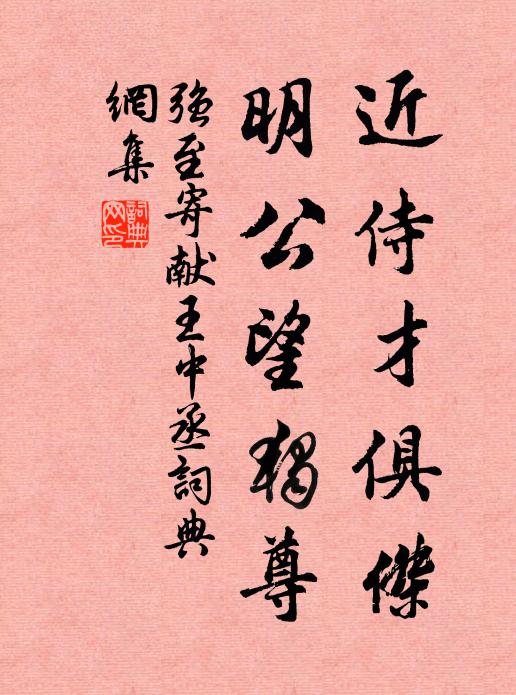 近侍才俱傑
明公望獨尊
強至寄献王中丞詞典
網集
詞典網印